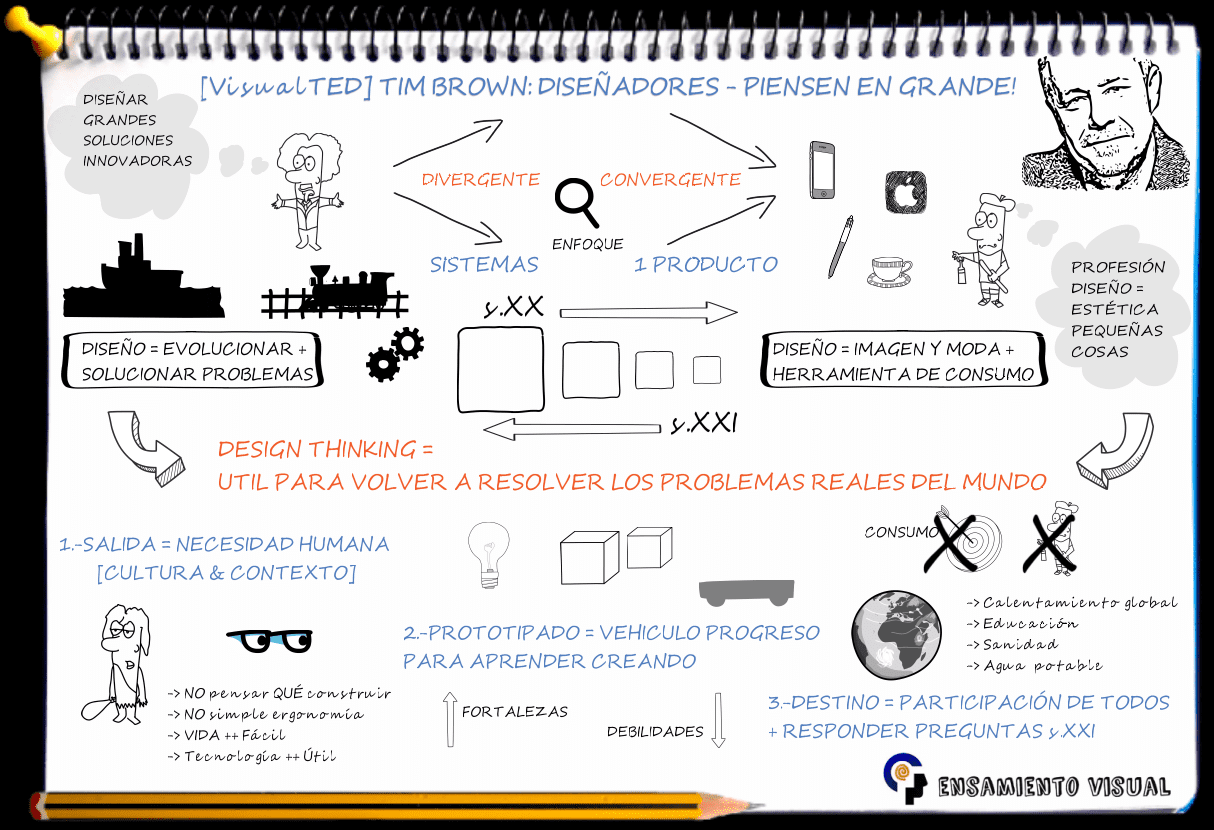 [VisualTED] TIM BROWN: DISEÑADORES - PIENSEN EN GRANDE!
DISEÑAR
GRANDES
SOLUCIONES
INNOVADORAS
DIVERGENTE
CONVERGENTE
ENFOQUE
SISTEMAS
1 PRODUCTO
PROFESIÓN
DISEÑO =
ESTÉTICA
PEQUEÑAS
COSAS
s.XX
DISEÑO = EVOLUCIONAR +
SOLUCIONAR PROBLEMAS
DISEÑO = IMAGEN Y MODA +
HERRAMIENTA DE CONSUMO
s.XXI
DESIGN THINKING =
UTIL PARA VOLVER A RESOLVER LOS PROBLEMAS REALES DEL MUNDO
1.-SALIDA = NECESIDAD HUMANA
[CULTURA & CONTEXTO]
-> NO pensar QUÉ construir
-> NO simple ergonomía
-> VIDA ++ Fácil
-> Tecnología ++ Útil
2.-PROTOTIPADO = VEHICULO PROGRESO
PARA APRENDER CREANDO
FORTALEZAS
DEBILIDADES
CONSUMO
-> Calentamiento global
-> Educación
-> Sanidad
-> Agua potable
3.-DESTINO = PARTICIPACIÓN DE TODOS
+ RESPONDER PREGUNTAS s.XXI
ENSAMIENTO VISUAL